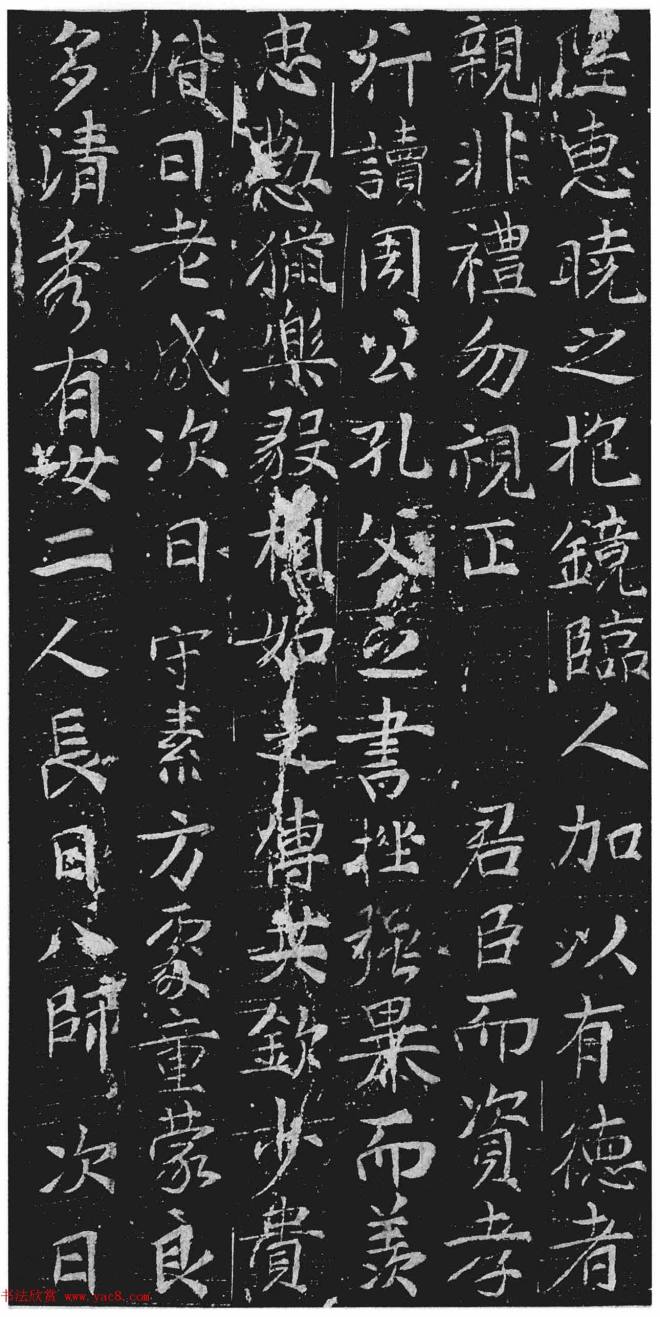 陸惠曉之抱鏡臨人加以有德者
親非禮勿視正 君臣而資孝
行讀周公孔父之書挫強暴而羨
忠懃獵樂毅相如之傳共欽步貴
偕曰老成次曰 守素方處童蒙良
多清秀有女二人長曰八師次曰
书法欣赏 www.yac8.com